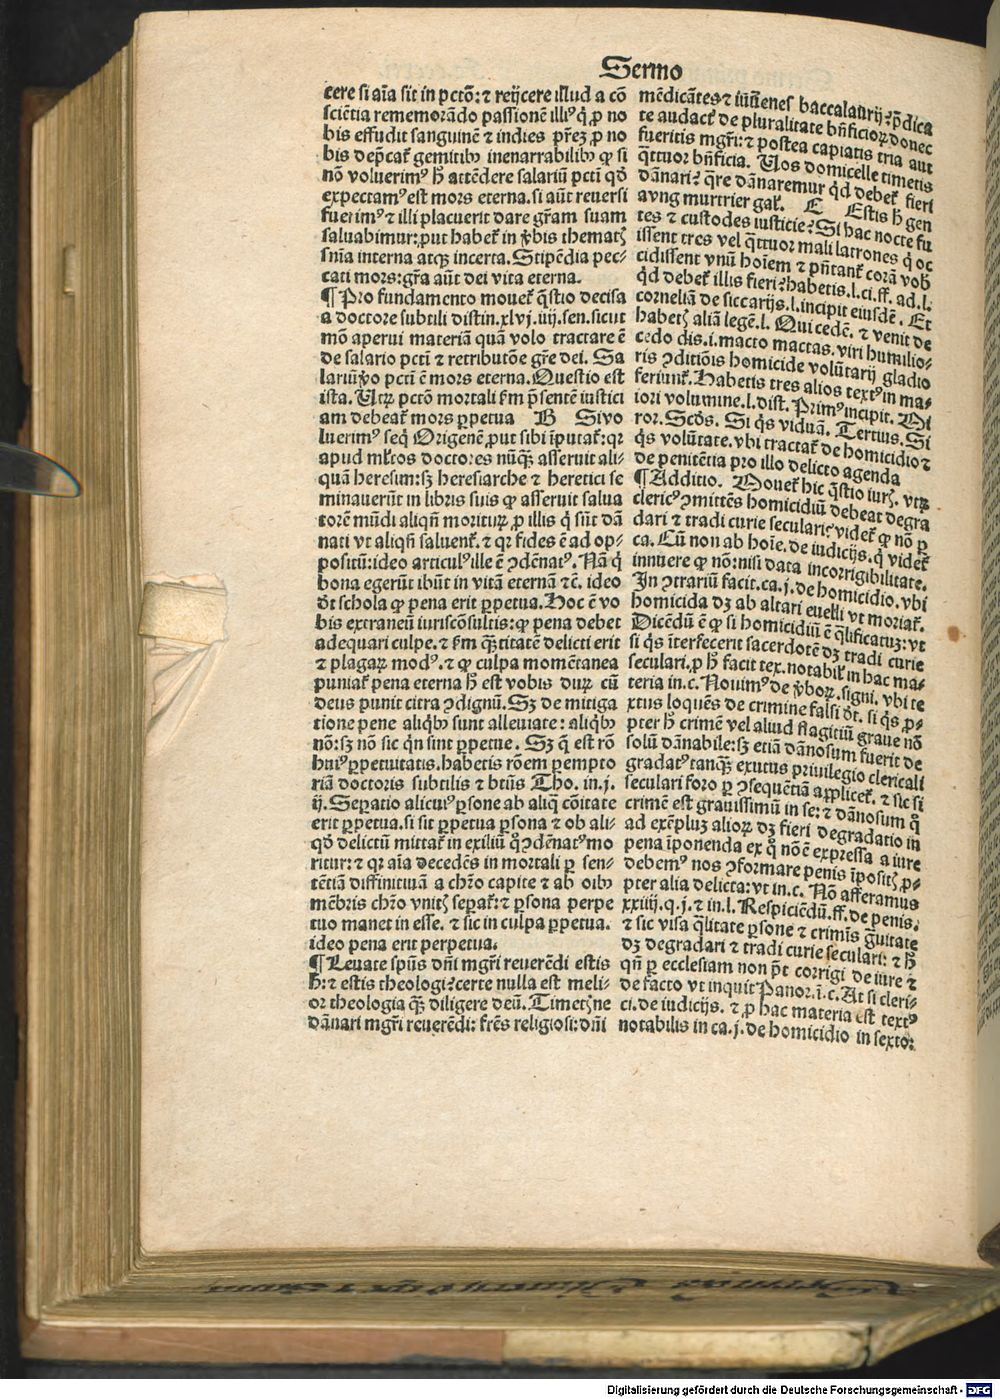 Sermo
cere si aĩa sit in pctõ: ⁊ reijcere illud a cõ
sciẽtia rememorãdo passionẽ illiꝰ q̇ ꝓ no
bis effudit sanguinẽ ⁊ indies pr̃ez ꝓ no
bis dep̃cat᷑ gemitibꝰ inenarrabilibꝰ ꝙ si
nõ voluerimꝰ h̃ attẽdere salariũ pcti qd̛
expectamꝰ est mors eterna. si aũt reuersi
fuerimꝰ ⁊ illi placuerit dare gr̃am suam
saluabimur: ꝓut habet᷑ in ꝟbis thematꝭ
snĩa interna atqꝫ incerta. Stipẽdia pec⸗
cati mors: gr̃a aũt dei vita eterna.
¶ Pro fundamento mouet᷑ q̃stio decisa
a doctore subtili distin. xlvj. iiij. sen. sicut
mõ aperui materiã quã volo tractare ẽ
de salario pcti ⁊ retributõe gr̃e dei. Sa
lariũ ꝟo pcti ẽ mors eterna. Questio est
ista. Utꝝ pctõ mortali ẜm p̃sentẽ iustici
am debeat᷑ mors ꝑpetua B Si vo
luerimꝰ seq̇ Origenẽ ꝓut sibi ĩputat᷑: qꝛ
apud ml̃tos doctores nũqꝫ asseruit ali⸗
quã heresim: sꝫ heresiarche ⁊ heretici se
minauerũt in libris suis ꝙ asseruit salua
torẽ mũdi aliqñ moriturꝰ ꝓ illis q̇ sũt dã
nati vt aliqñ saluent᷑. ⁊ qꝛ fides ẽ ad op⸗
positũ: ideo articulꝰ ille ẽ ꝯdẽnatꝰ. Nã q̇
bona egerũt ibũt in vitã eternã ⁊c̃. ideo
dt̃ schola ꝙ pena erit ꝑpetua. Hoc ẽ vo
bis extraneũ iuriscõsultis: ꝙ pena debet
adequari culpe. ⁊ ẜm qꝫtitatẽ delicti erit
⁊ plagaꝝ modꝰ. ⁊ ꝙ culpa momẽtanea
puniat᷑ pena eterna h̃ est vobis durꝝ cũ
deus punit citra ꝯdignũ. Sꝫ de mitiga
tione pene aliqbꝰ sunt alleuiate: aliqbꝰ
nõ: sꝫ nõ sic qn sint ꝑpetue. Sꝫ q̃ est rõ
huiꝰ ꝑpetuitatis. habetis rõem ꝑempto
riã doctoris subtilis ⁊ btũs Tho. in. j.
ij. Sep̃atio alicuiꝰ ꝑsone ab aliq̃ cõitate
erit ꝑpetua. si sit ꝑpetua ꝑsona ⁊ ob ali⸗
qd̛ delictũ mittat᷑ in exiliũ qͦ ꝯdẽnatꝰ mo
ritur: ⁊ qꝛ aĩa decedẽs in mortali ꝑ sen⸗
tẽtiã diffinitiuã a chr̃o capite ⁊ ab oĩbꝰ
mẽbris chr̃o vnitꝭ sep̃at᷑: ⁊ ꝑsona perpe
tuo manet in esse. ⁊ sic in culpa ꝑpetua.
ideo pena erit perpetua.
¶ Leuate spũs dñi mgr̃i reuerẽdi estis
h̃: ⁊ estis theologi? certe nulla est meli⸗
or theologia qꝫ diligere deũ. Timetꝭ ne
dãnari mgr̃i reuerẽdi: fr̃es religiosi: dñi
mẽdicãtes ⁊ iuuenes baccalaurij? p̃dica
te audact᷑ de pluralitate bñficioꝝ donec
fueritis mgr̃i: ⁊ postea capiatis tria aut
q̃ttuor bñficia. Uos domicelle timetis
dãnari? q̃re dãnaremur qd̛ debet᷑ fieri
avng murtrier gal᷑. E Estis h̃ gen
tes ⁊ custodes iusticie? Si hac nocte fu
issent tres vel q̃ttuor mali latrones q̇ oc
cidissent vnũ hoĩem ⁊ pñtant᷑ corã vob̃
qd̛ debet᷑ illis fieri? habetis. l. ci. ff. ad. l.
corneliã de siccarijs. l. incipit eiusdẽ. Et
habetꝭ aliã legẽ. l. Qui cedẽ. ⁊ venit de
cedo dis. i. macto mactas. viri humilio⸗
ris ꝯditiõis homicide volũtarij gladio
feriunt᷑. Habetis tres alios textꝰ in ma⸗
iori volumine. l. dist. Primꝰ incipit. Mi
ror. Scd̛s. Si q̇s viduã. Tertius. Si
q̇s volũtate. vbi tractat᷑ de homicidio ⁊
de penitẽtia pro illo delicto agenda
¶ Additio. Mouet᷑ hic q̃stio iurꝭ. vtꝝ
clericꝰ ꝯmittẽs homicidiũ debeat degra
dari ⁊ tradi curie seculari? videt᷑ ꝙ nõ ꝑ
ca. Cũ non ab hoĩe. de iudicijs. q̃ videt᷑
innuere ꝙ nõ: nisi data incorrigibilitate.
In ꝯtrariũ facit. ca. j. de homicidio. vbi
homicida dꝫ ab altari euelli vt moriat᷑.
Dicẽdũ ẽ ꝙ si homicidiũ ẽ q̃lificatuꝫ: vt
si q̇s ĩterfecerit sacerdotẽ dꝫ tradi curie
seculari. ꝓ h̃ facit tex. notabil᷑ in hac ma⸗
teria in. c. Nouimꝰ de ꝟboꝝ. signi. vbi te
xtus loquẽs de crimine falsi dt̃. si q̇s ꝓ⸗
pter h̃ crimẽ vel aliud flagitiũ graue nõ
solũ dãnabile: sꝫ etiã dãnosum fuerit de
gradatꝰ tanqꝫ exutus priuilegio clericali
seculari foro ꝑ ꝯsequẽtiã applicet᷑. ⁊ sic si
crimẽ est grauissimũ in se: ⁊ dãnosum qͦ
ad exẽpluꝫ alioꝝ dꝫ fieri degradatio in
pena ĩponenda ex q̃ nõ ẽ expressa a iure
debemꝰ nos ꝯformare penis ĩpositꝭ ꝓ⸗
pter alia delicta: vt in. c. Nõ afferamus
xxiiij. q. j. ⁊ in. l. Respiciẽdũ. ff. de penis.
⁊ sic visa q̃litate ꝑsone ⁊ crimĩs g̃uitate
dꝫ degradari ⁊ tradi curie seculari: ⁊ h̃
qñ ꝑ ecclesiam non põt corrigi de iure ⁊
de facto vt inquit Panor. ĩ. c. At si cleri⸗
ci. de iudicijs. ⁊ ꝓ hac materia est textꝰ
notabilis in ca. j. de homicidio in sexto:
Digitalisierung gefördert durch die Deutsche Forschungsgemeinschaft - DFG